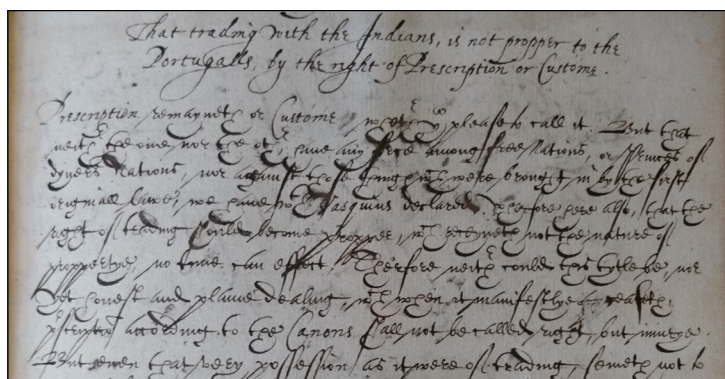 That trading with the Indians, is not propper to the
Portugalls, by the right of Prescription or Custome.
Prescription remayneth or Custome, wch you please to call it. But that
neither the one nor the other, have any force among free Nations, or Princes of
dyvers Nations, nor against those things wch were brought in by the first
originall Lawe, we have wth Vasquius declared. Wherfore here also, that the
right of trading should become propper, wch receyveth not the nature of
proppertye, no time can effect. Therfore neither could this tytle be, nor
yet honest and playne dealing, wch when it manifestlye ceaseth,
prscription according to the Canons shall not be called right, but iniurye.
But even that very possession as it were of trading, semeth not to